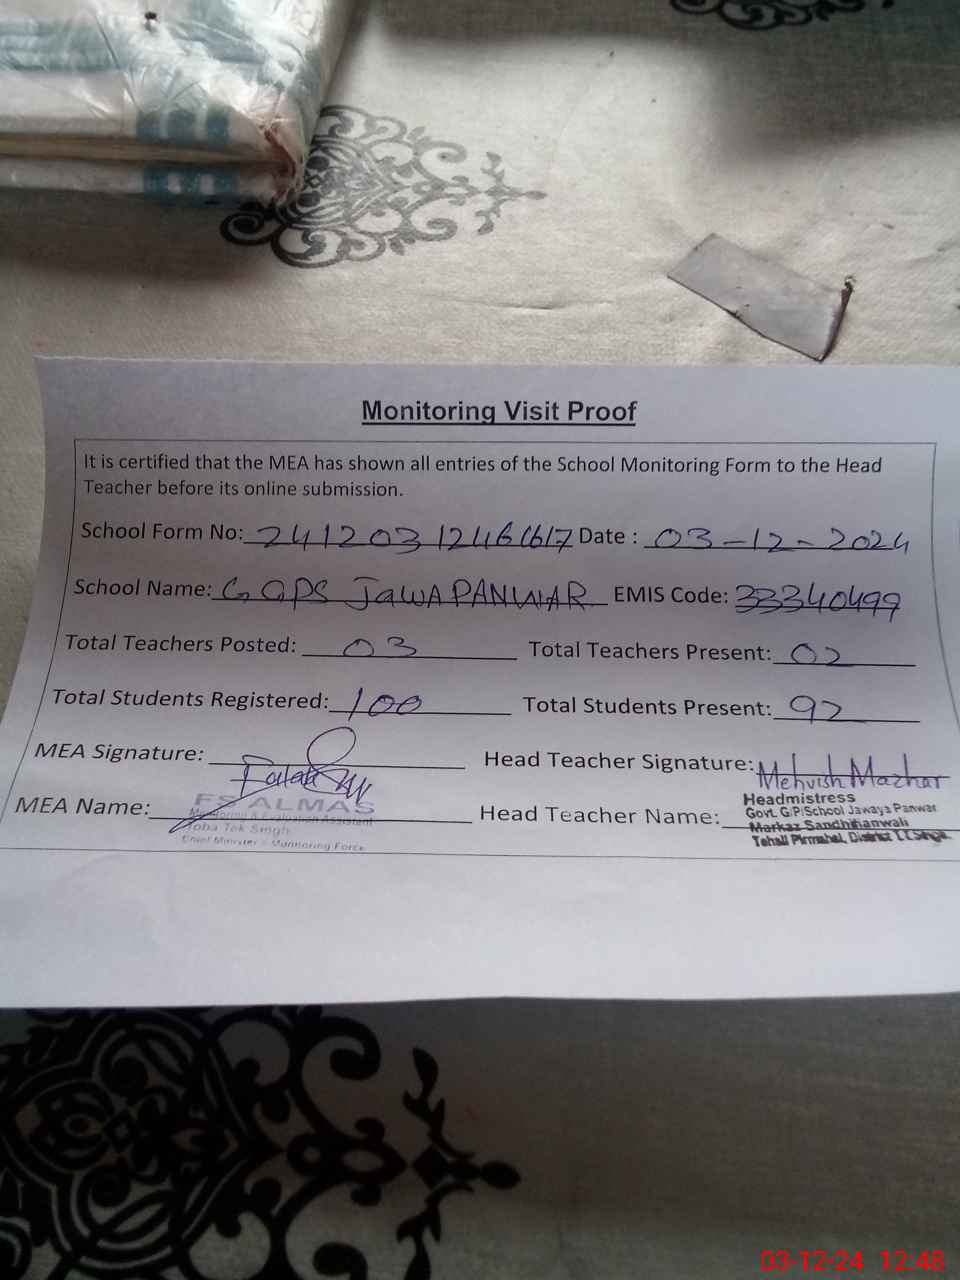 Monitoring Visit Proof
It is certified that the MEA has shown all entries of the School Monitoring Form to the Head
Teacher before its online submission.
School Form No: 24120312461617 Date : 03-12-2024
School Name: GGPS JAWAPANWAR EMIS Code: 33340499
Total Teachers Posted: 03 Total Teachers Present: 02
Total Students Registered: 100 Total Students Present: 92
MEA Signature: Head Teacher Signature: Mehvish Mazhar
MEA Name: ALMAS Head Teacher Name:
Monitoring & Evaluation Assistant
Toba Tek Singh
Chief Minister's Monitoring Force
Headmistress
Govt. G/P/School Jawaya Panwar
Markaz Sandhilianwali
Tehsil Pirmahal, District T.T.Singh
03-12-24 12:48